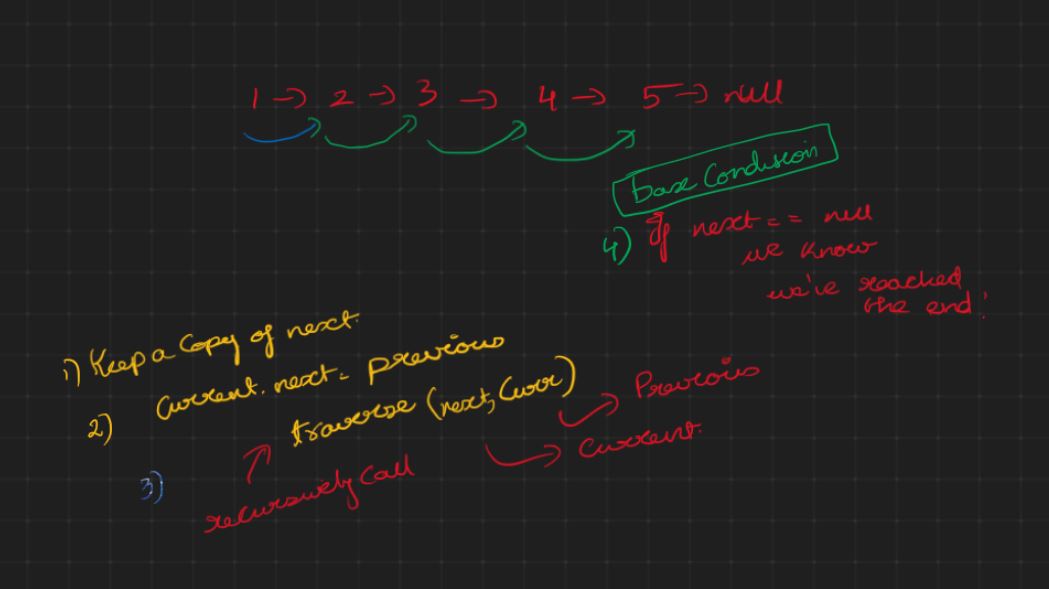 1 → 2 → 3 → 4 → 5 → null
Base Condition
4) If next == null
we know
we've reached
the end!
1) Keep a Copy of next.
2) Current.next = previous
3) traverse (next, Curr)
→ Previous
→ Current.
recursively Call